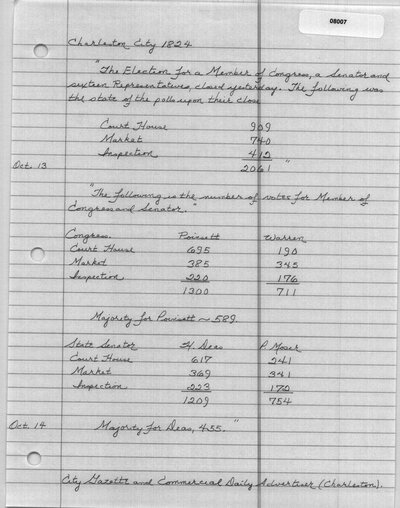 08007
Charleston City 1824
"The Election for a Member of Congress, a Senator and
sixteen Representatives, closed yesterday. The following was
the state of the polls upon their close
Court House 909
Market 740
Inspection 412
Oct. 13 2061"
"The following is the number of votes for Member of
Congress and Senator."
Congress. Poinsett Warren
Court House 695 190
Market 385 345
Inspection 220 176
1300 711
Majority for Poinsett ~ 589.
State Senator H. Deas P. Moser
Court House 617 241
Market 369 341
Inspection 223 172
1209 754
Oct. 14 Majority for Deas, 455."
City Gazette and Commercial Daily Advertiser (Charleston).